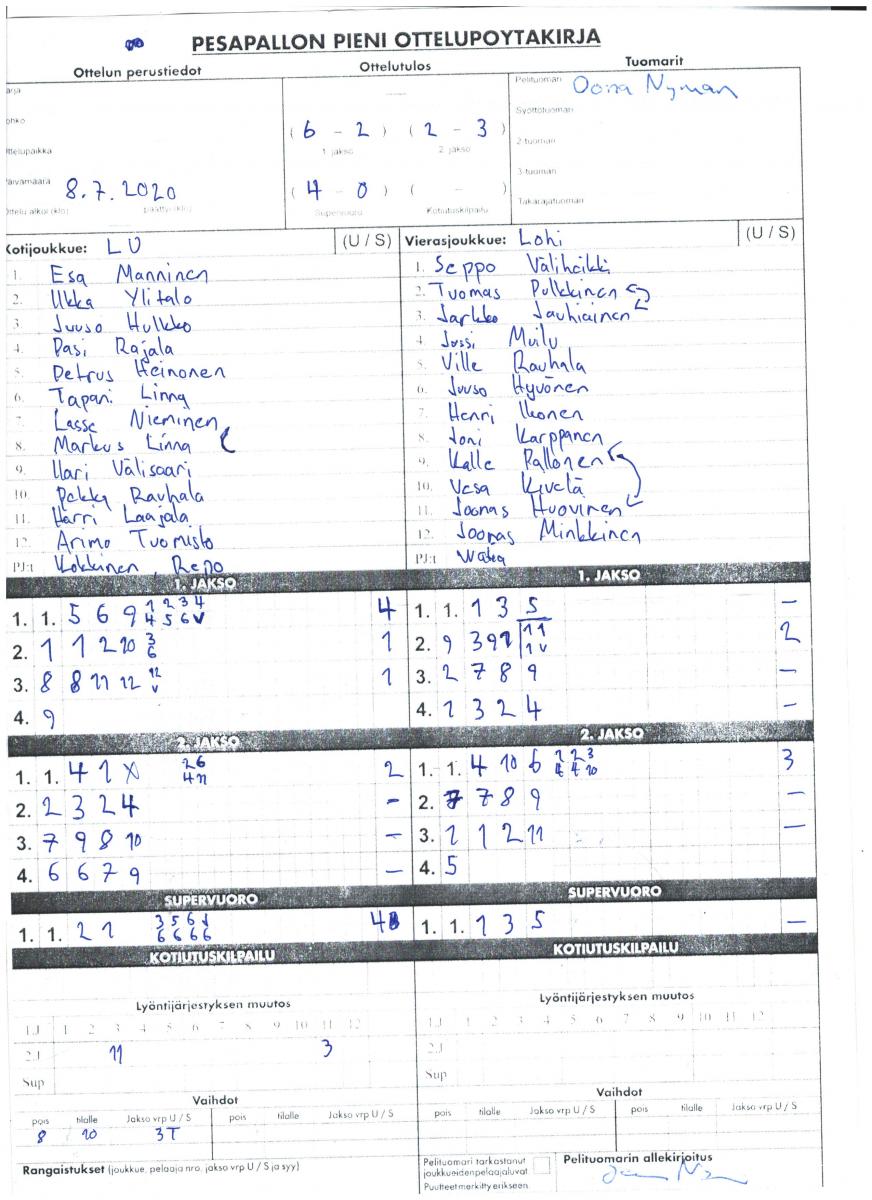 PESAPALLON PIENI OTTELUPOYTAKIRJA
Ottelun perustiedot
Ottelutulos
Tuomarit
Pelituomari Oona Nyman
Syöttötuomari
2-tuomari
3-tuomari
Takarajatuomari
arja
ohko
Ottelupaikka
Päivämäärä 8.7.2020
Ottelu alkoi (klo) päättyi (klo)
( 6 - 2 ) ( 2 - 3 )
1. jakso 2. jakso
( 4 - 0 ) ( - )
Supervuoro Kotiutuskilpailu
Kotijoukkue: LU (U / S)
1. Esa Manninen
2. Ukka Ylitalo
3. Juuso Hulkko
4. Pasi Rajala
5. Petrus Heinonen
6. Tapani Linna
7. Lasse Nieminen
8. Markus Linna
9. Ilari Välisaari
10. Pekka Rauhala
11. Harri Laajala
12. Arimo Tuomisto
PJ:t Kokkinen, Repo
Vierasjoukkue: Lohi (U / S)
1. Seppo Väliheikki
2. Tuomas Pulkkinen
3. Jarkko Jauhiainen
4. Jussi Muilu
5. Ville Rauhala
6. Juuso Hyvönen
7. Henri Ikonen
8. Joni Karppanen
9. Kalle Pallonen
10. Vesa Kivelä
11. Joonas Huovinen
12. Joonas Minkkinen
PJ:t
1. JAKSO
1. 1. 5 6 9 1 2 3 4 4
4 5 6 v
2. 1 1 2 10 3 1
6
3. 8 8 11 12 12 1
v
4. 9
1. JAKSO
1. 1. 1 3 5 -
2. 9 3 9 1 1 1 2
1 v
3. 2 7 8 9 -
4. 1 3 2 4 -
2. JAKSO
1. 1. 4 1 X 2 6 2
4 11
2. 2 3 2 4 -
3. 7 9 8 10 -
4. 6 6 7 9 -
2. JAKSO
1. 1. 4 10 6 1 2 3 3
4 4 10
2. 7 7 8 9 -
3. 1 1 2 11 -
4. 5
SUPERVUORO
1. 1. 2 1 3 5 6 v 4
6 6 6 6
SUPERVUORO
1. 1. 1 3 5 -
KOTIUTUSKILPAILU
KOTIUTUSKILPAILU
Lyöntijärjestyksen muutos
1.J 1 2 3 4 5 6 7 8 9 10 11 12
2.J 11 3
Sup
Lyöntijärjestyksen muutos
1.J 1 2 3 4 5 6 7 8 9 10 11 12
2.J
Sup
Vaihdot
pois tilalle Jakso vrp U / S pois tilalle Jakso vrp U / S
8 10 3T
Vaihdot
pois tilalle Jakso vrp U / S pois tilalle Jakso vrp U / S
Rangaistukset (joukkue, pelaaja nro, jakso vrp U / S ja syy)
Pelituomari tarkastanut
joukkueiden pelaajaluvat.
Puutteet merkitty erikseen.
Pelituomarin allekirjoitus